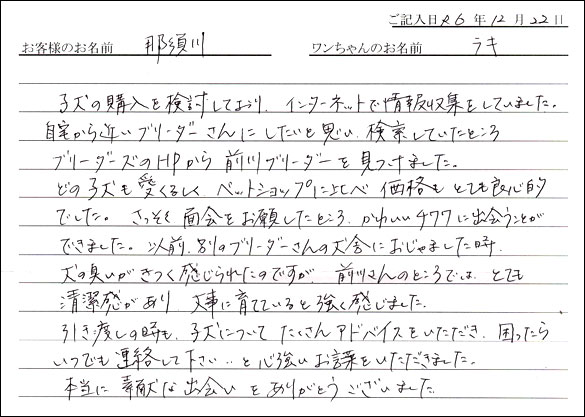 ご記入日 R6年12月22日
お客様のお名前 那須川 ワンちゃんのお名前 ラキ
子犬の購入を検討しており、インターネットで情報収集をしていました。
自宅から近いブリーダーさんにしたいと思い、検索していたところ
ブリーダーズのHPから前川ブリーダーを見つけました。
どの子犬も愛くるしく、ペットショップに比べ価格もとても良心的
でした。さっそく面会をお願したところ、かわいいチワワに出会うことが
できました。以前、別のブリーダーさんの犬舎におじゃました時、
犬の臭いがきつく感じられたのですが、前川さんのところでは、とても
清潔感があり、大事に育てていると強く感じました。
引き渡しの時も、子犬についてたくさんアドバイスをいただき、困ったら
いつでも連絡して下さい..と心強いお言葉をいただきました。
本当に素敵な出会いをありがとうございました